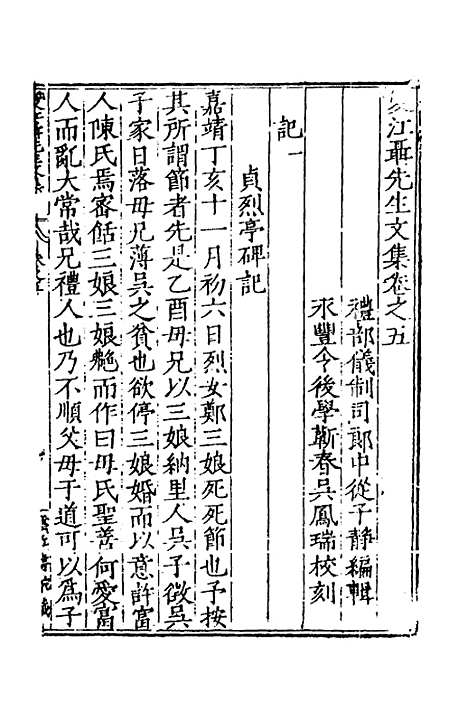 江聶先生文集卷之五
禮部儀制司郎中從子靜編輯
永豐令後學蘄春吳鳳瑞校刻
記一
貞烈亭碑記
嘉靖丁亥十一月初六日烈女鄭三娘死死節也予按
其所謂節者先是乙酉毋兄以三娘納里人吳子徵吳
子家日落毋兄薄吳之貧也欲停三娘婚而以意許富
人陳氏焉密餂三娘三娘艴而作曰毋氏聖善何愛富
人而亂大常哉兄禮人也乃不順父毋于道可以爲子